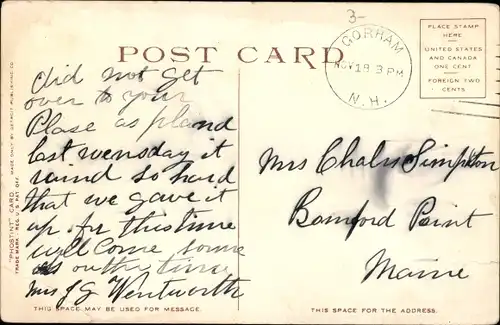 3-
POST CARD
GORHAM
NOV 18 3 PM
N.H.
PLACE STAMP
HERE
UNITED STATES
AND CANADA
ONE CENT
FOREIGN TWO
CENTS
"PHOSTINT" CARD
TRADE MARK, REG. U.S. PAT. OFF.
MADE ONLY BY DETROIT PUBLISHING CO.
did not get
over to your
Plase as pland
last wensday it
raind so hard
that we gave it
up for this time
will come some
outhr time
Mrs J G Wentworth
Mrs Chals Simpton
Bamford Point
Maine
THIS SPACE MAY BE USED FOR MESSAGE.
THIS SPACE FOR THE ADDRESS.